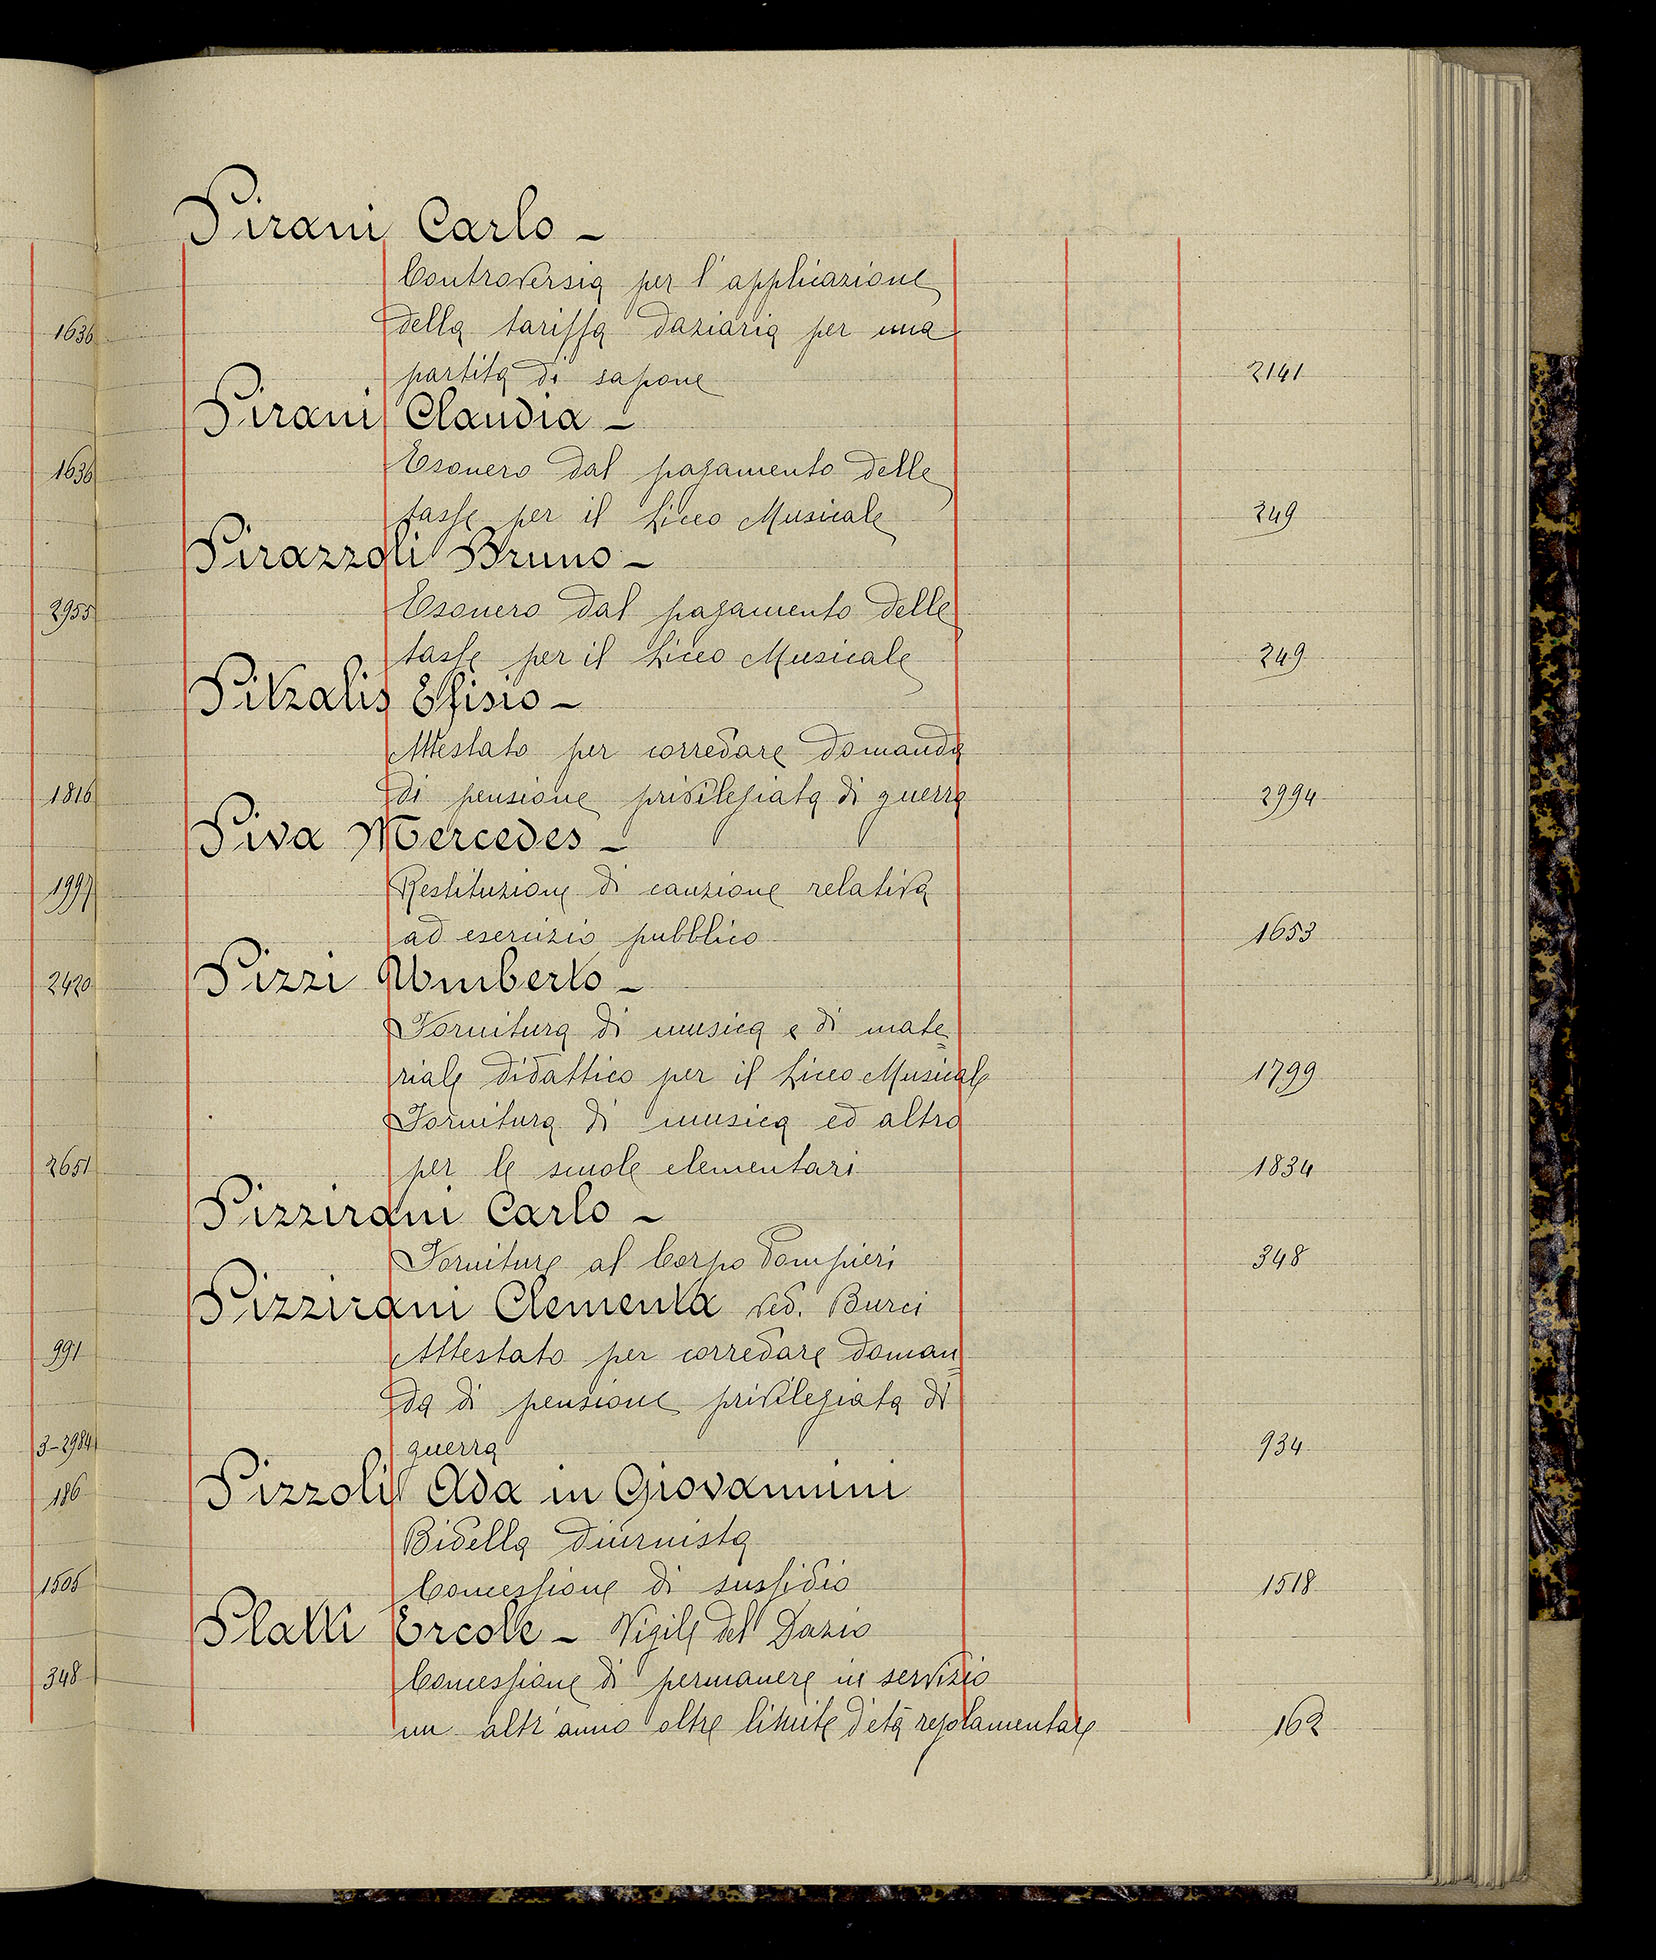 1636
1636
2955
1816
1997
2420
2651
991
3-2984
186
1505
348
Pirani Carlo -
Controversia per l'applicazione
della tariffa daziaria per una
partita di sapone 2141
Pirani Claudia -
Esonero dal pagamento delle
tasse per il Liceo Musicale 249
Pirazzoli Bruno -
Esonero dal pagamento delle
tasse per il Liceo Musicale 249
Pitzalis Efisio -
Attestato per corredare domanda
di pensione privilegiata di guerra 2994
Piva Mercedes -
Restituzione di cauzione relativa
ad esercizio pubblico 1653
Pizzi Umberto -
Fornitura di musica e di mate=
riale didattico per il Liceo Musicale 1799
Fornitura di musica ed altro
per le scuole elementari 1834
Pizzirani Carlo -
Forniture al Corpo Pompieri 348
Pizzirani Clementa ved. Burci
Attestato per corredare doman=
da di pensione privilegiata di
guerra 934
Pizzoli Ada in Giovannini
Bidella diurnista
Concessione di sussidio 1518
Platti Ercole - Vigile del Dazio
Concessione di permanere in servizio
un altr'anno oltre limite d'età regolamentare 162